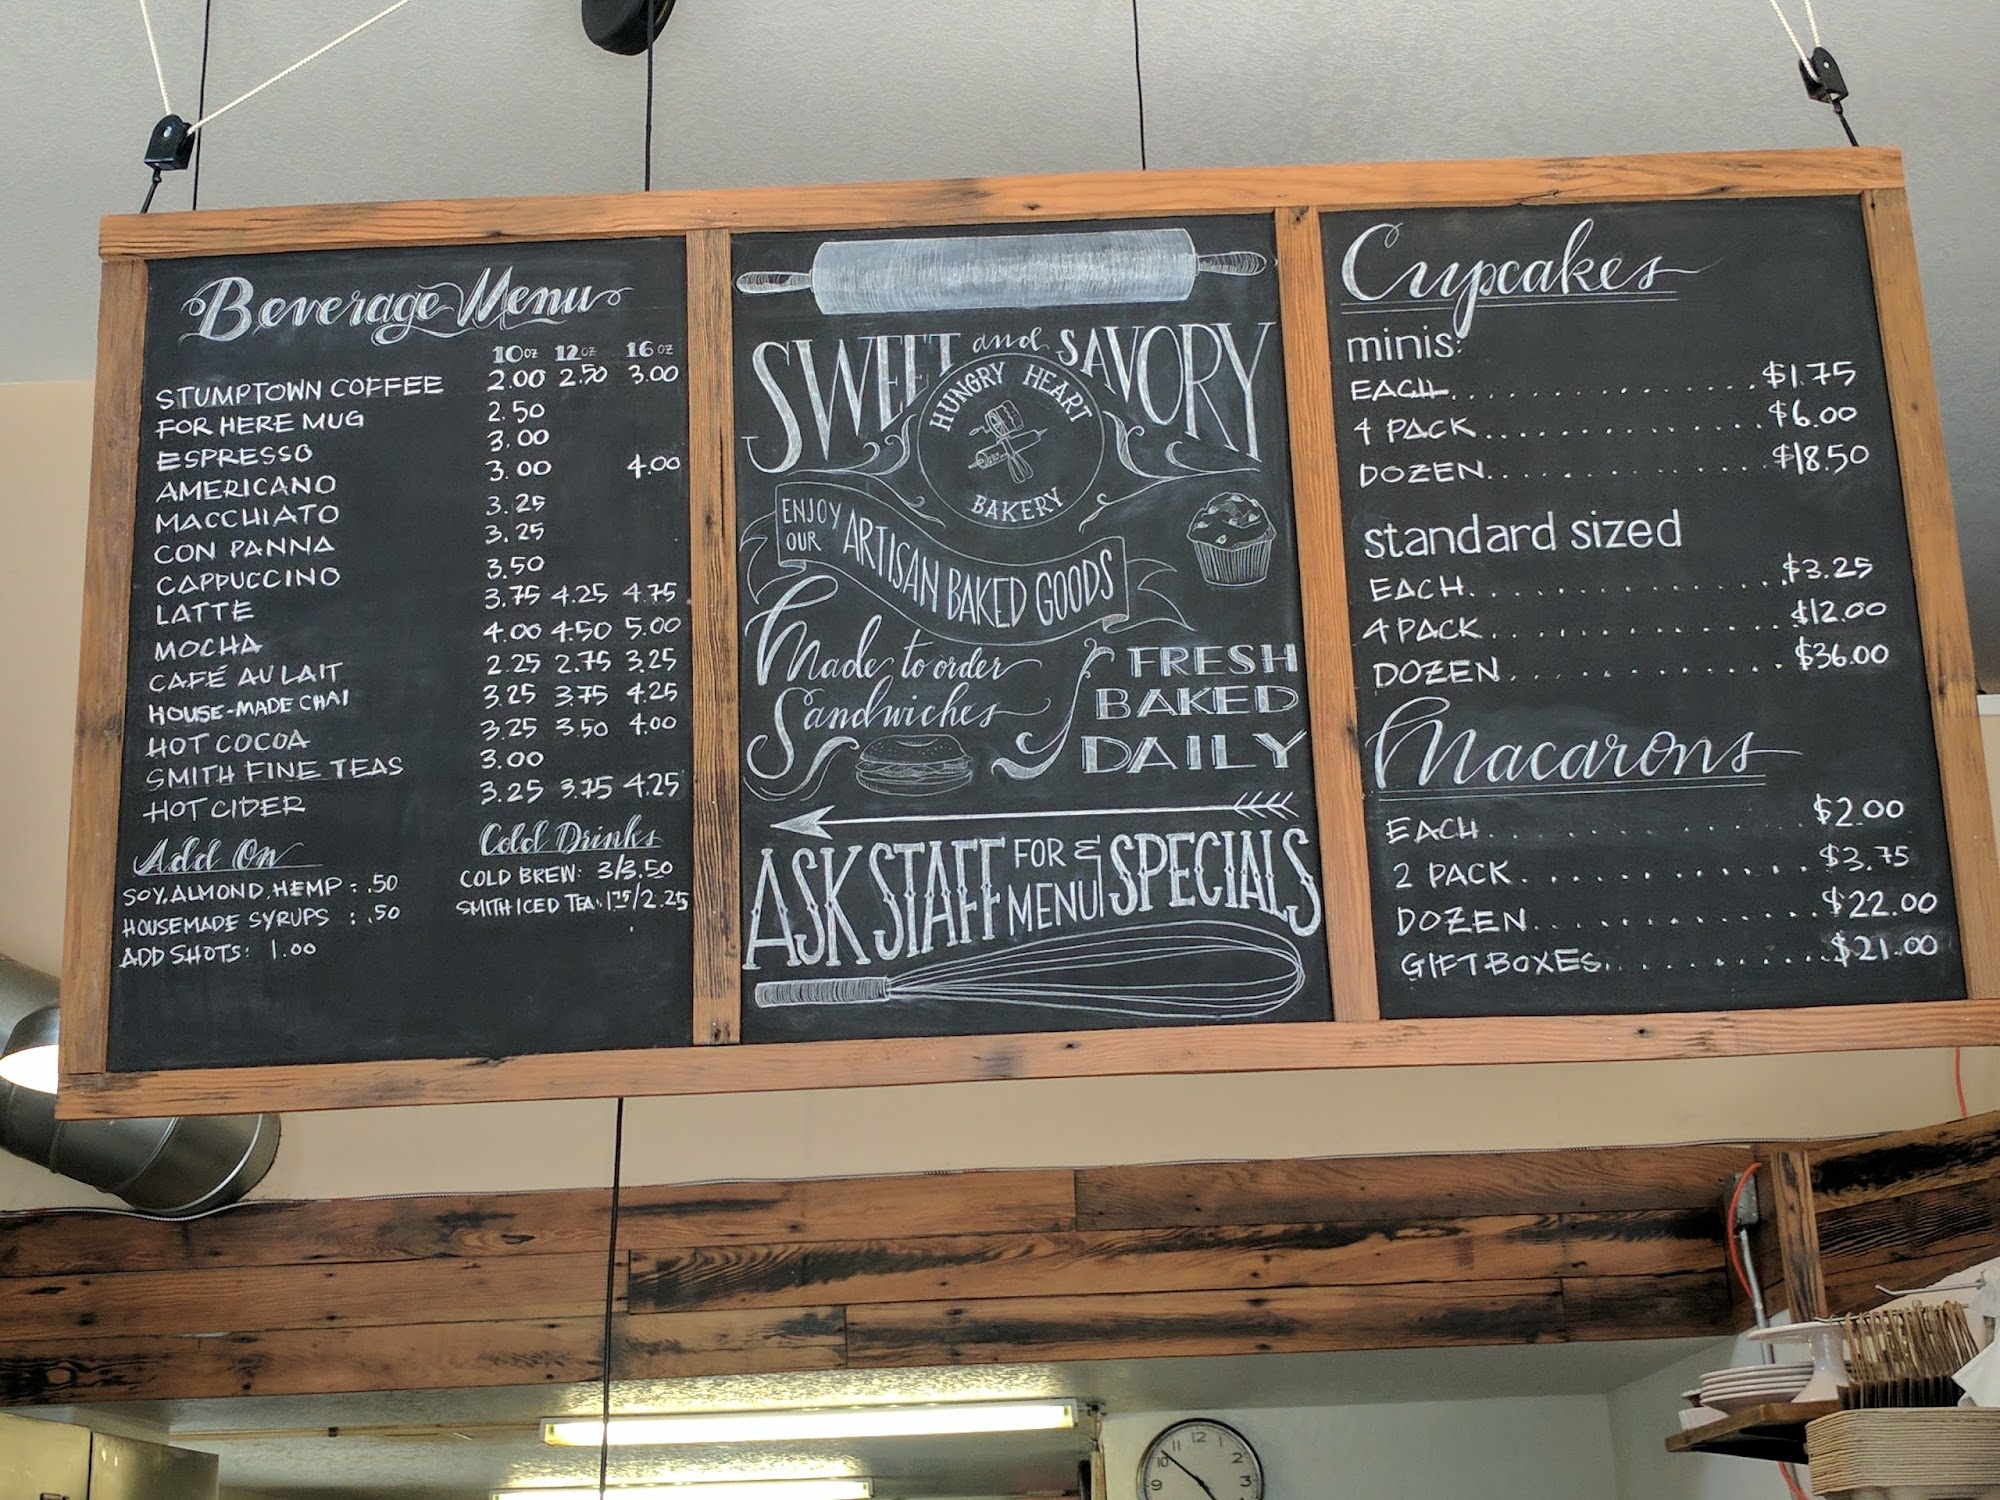 Beverage Menu
10oz 12oz 16oz
STUMPTOWN COFFEE 2.00 2.50 3.00
FOR HERE MUG 2.50
ESPRESSO 3.00
AMERICANO 3.00 4.00
MACCHIATO 3.25
CON PANNA 3.25
CAPPUCCINO 3.50
LATTE 3.75 4.25 4.75
MOCHA 4.00 4.50 5.00
CAFÉ AU LAIT 2.25 2.75 3.25
HOUSE-MADE CHAI 3.25 3.75 4.25
HOT COCOA 3.25 3.50 4.00
SMITH FINE TEAS 3.00
HOT CIDER 3.25 3.75 4.25
Add On
SOY, ALMOND, HEMP : .50
HOUSEMADE SYRUPS : .50
ADD SHOTS: 1.00
Cold Drinks
COLD BREW: 3/3.50
SMITH ICED TEA: 1.75/2.25
SWEET and SAVORY
HUNGRY HEART
BAKERY
ENJOY OUR ARTISAN BAKED GOODS
Made to order
Sandwiches
FRESH
BAKED
DAILY
ASK STAFF FOR MENU & SPECIALS
Cupcakes
minis:
EACH.................$1.75
4 PACK.................$6.00
DOZEN.................$18.50
standard sized
EACH.................$3.25
4 PACK.................$12.00
DOZEN.................$36.00
Macarons
EACH.................$2.00
2 PACK.................$3.75
DOZEN.................$22.00
GIFT BOXES.................$21.00
11 12 1
10 2
9 3